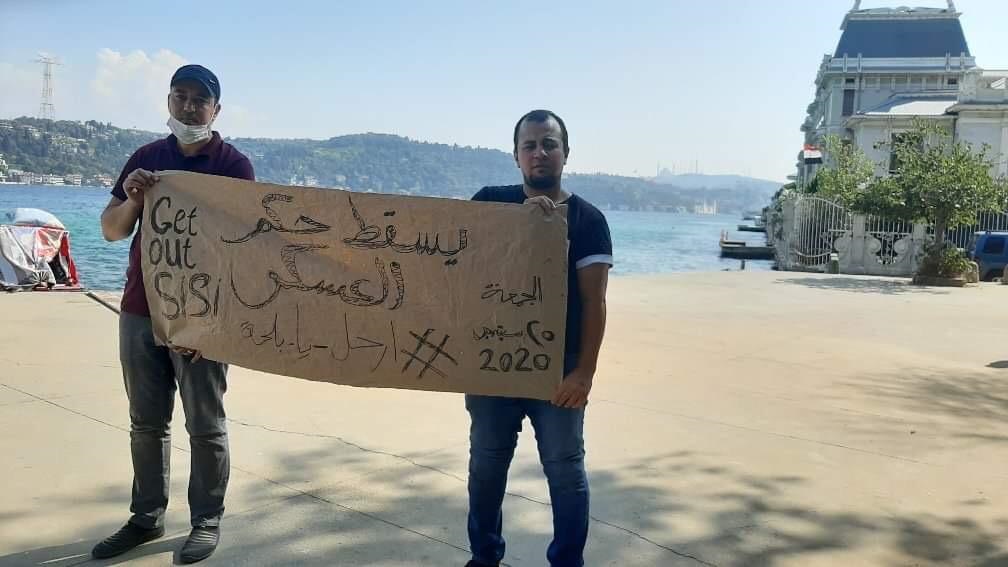 Get
out
SISi
يسقط حكم
العسكر
#ارحل_يا_بلحة
الجمعة
٢٠ سبتمبر
2020